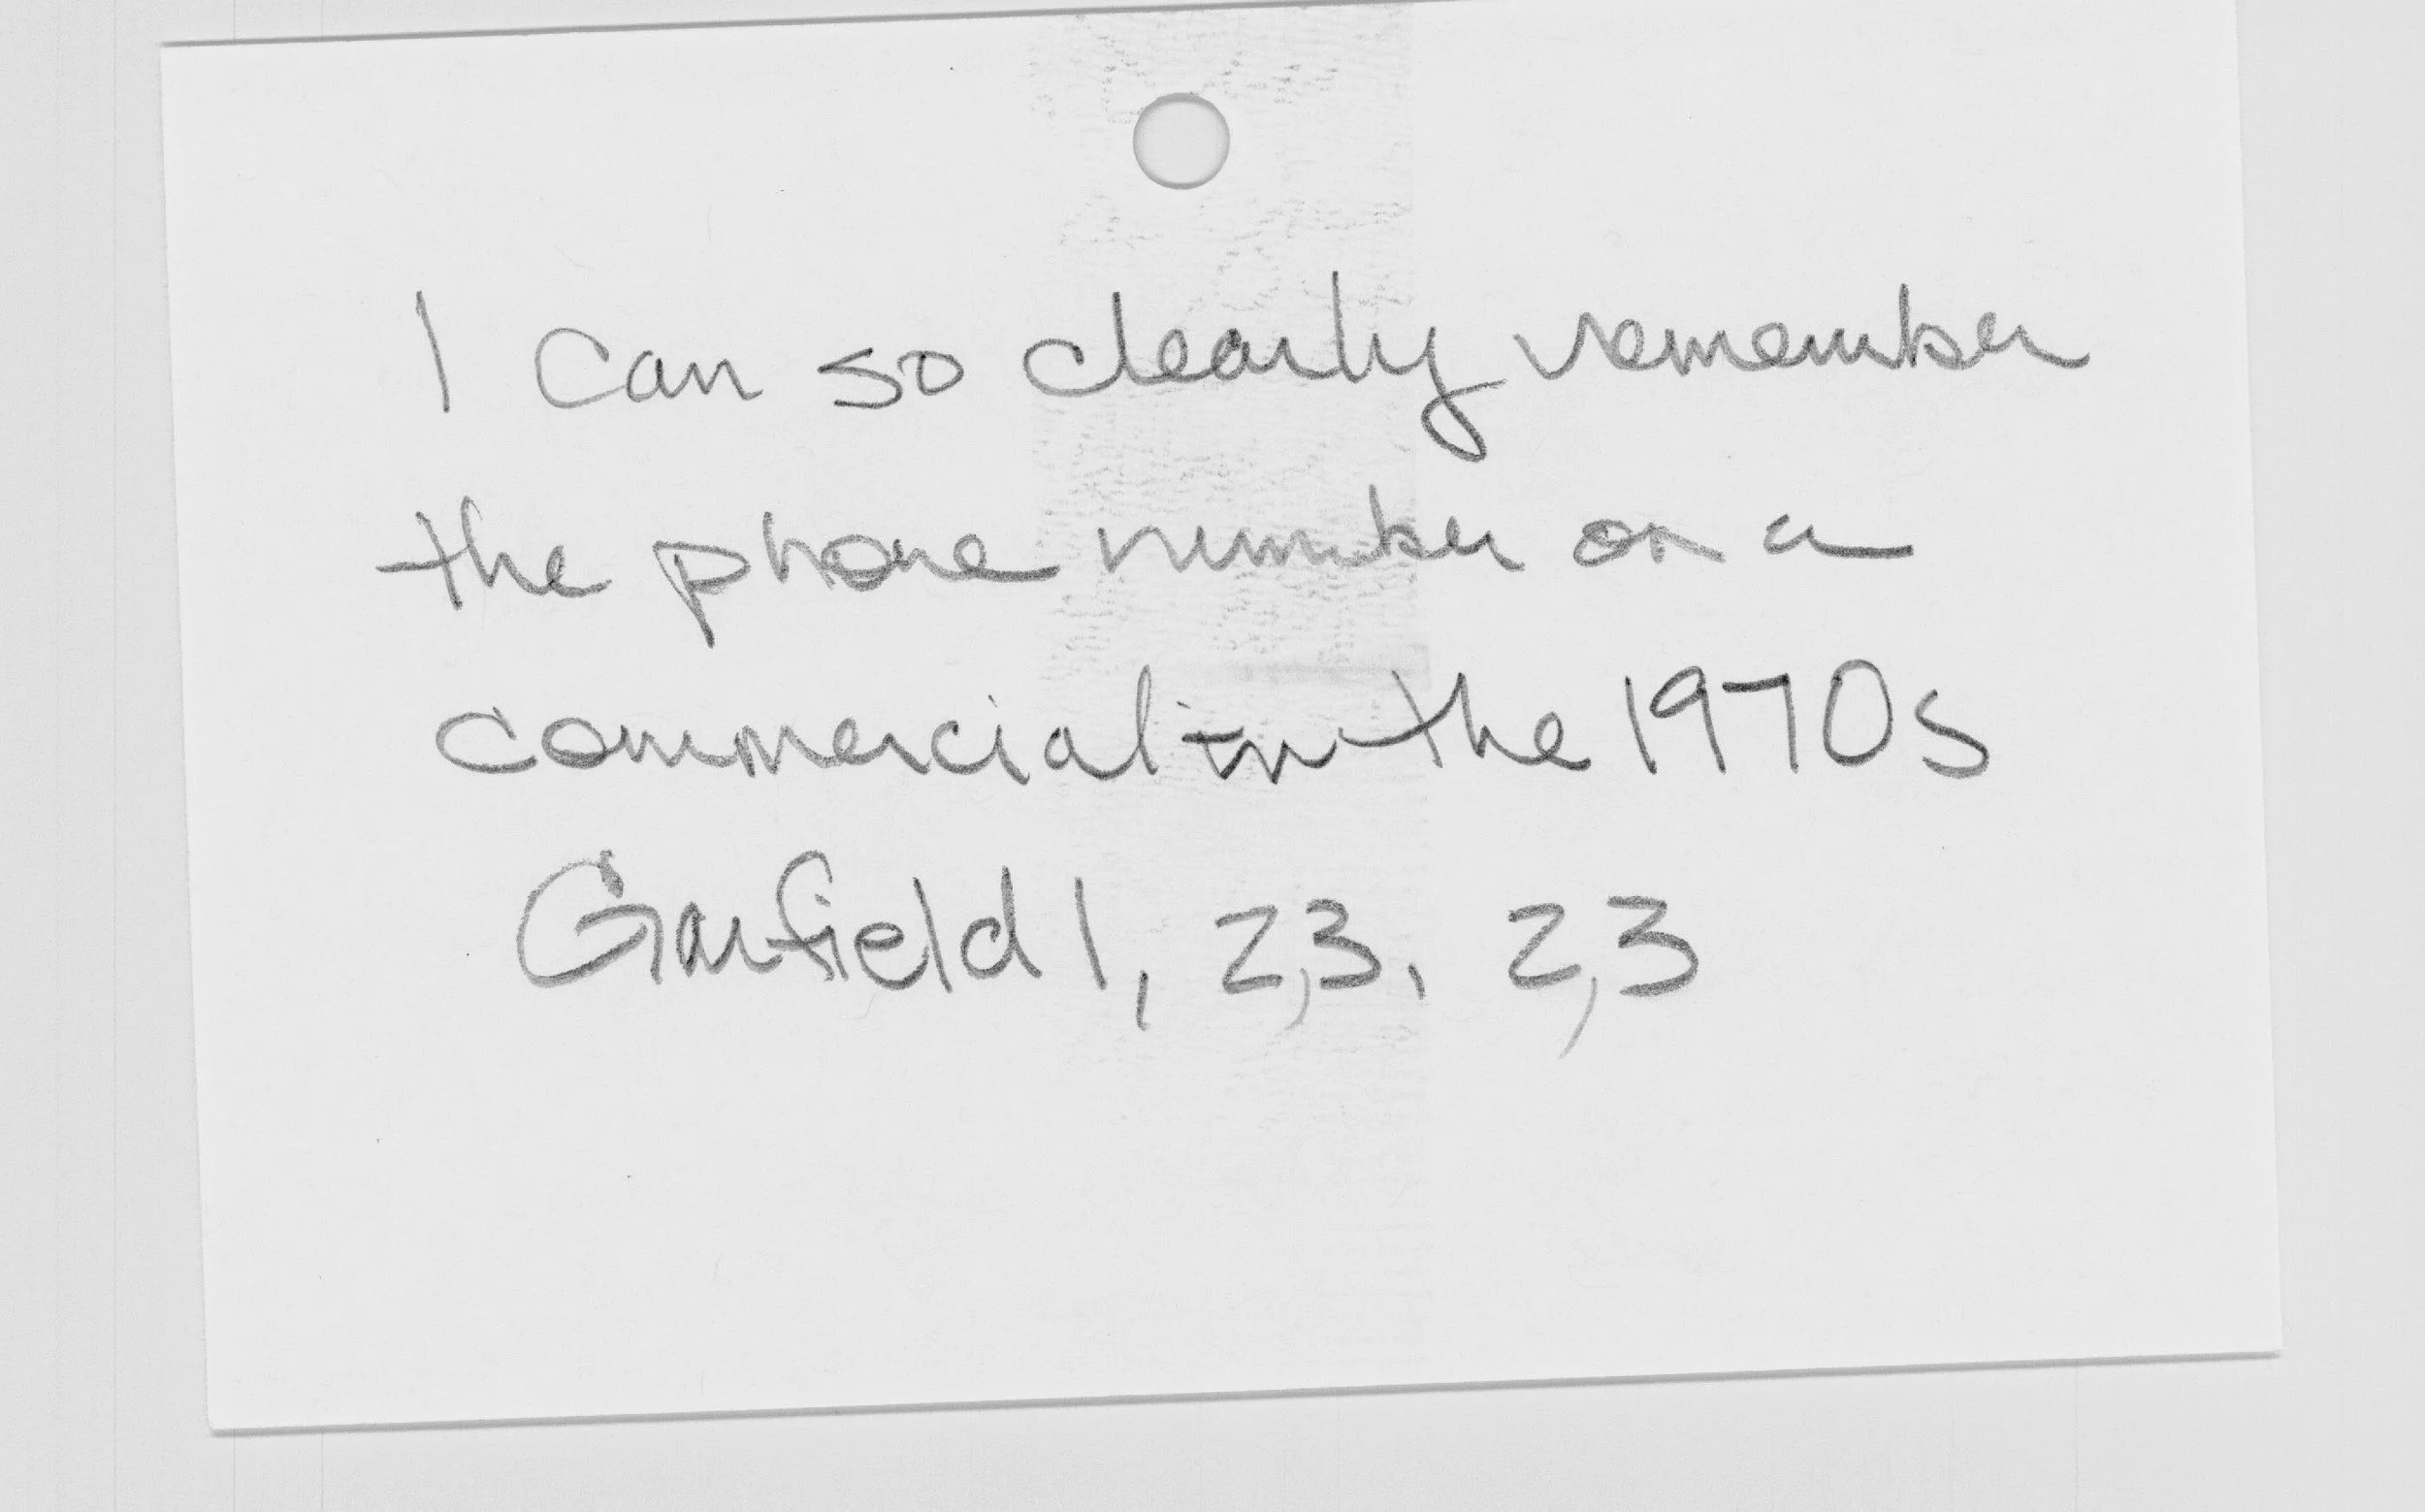 I can so clearly remember
the phone number on a
commercial in the 1970s
Garfield 1, 2,3, 2,3